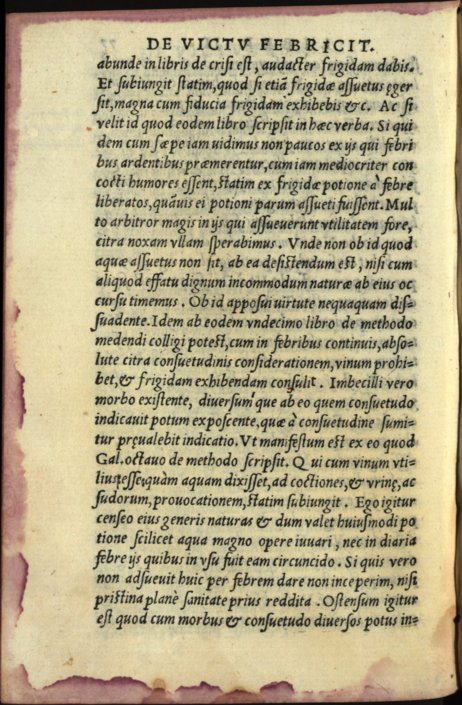 DE VICTV FEBRICIT.
abunde in libris de crisi est, audacter frigidam dabis.
Et subiungit statim, quod si etiã frigidæ assuetus ęger
sit, magna cum fiducia frigidam exhibebis &c. Ac si
velit id quod eodem libro scripsit in hæc verba. Si qui
dem cum sæpe iam uidimus non paucos ex ijs qui febri
bus ardentibus præmerentur, cum iam mediocriter con
cocti humores essent, statim ex frigidæ potione à febre
liberatos, quãuis ei potioni parum assueti fuissent. Mul
to arbitror magis in ijs qui assueuerunt vtilitatem fore,
citra noxam vllam sperabimus. Vnde non ob id quod
aquæ assuetus non sit, ab ea desistendum est, nisi cum
aliquod effatu dignum incommodum naturæ ab eius oc
cursu timemus. Ob id apposui virtute nequaquam dis=
suadente. Idem ab eodem vndecimo libro de methodo
medendi colligi potest, cum in febribus continuis, abso=
lute citra consuetudinis considerationem, vinum prohi=
bet, & frigidam exhibendam consulit. Imbecilli vero
morbo existente, diuersum'que ab eo quem consuetudo
indicauit potum exposcente, quæ à consuetudine sumi=
tur pręualebit indicatio. Vt manifestum est ex eo quod
Gal. octauo de methodo scripsit. Qui cum vinum vti=
lius esse, quàm aquam dixisset, ad coctiones, & vrinę, ac
sudorum, prouocationem, statim subiungit. Ego igitur
censeo eius generis naturas & dum valet huiusmodi po
tione scilicet aqua magno opere iuuari, nec in diaria
febre ijs quibus in vsu fuit eam circuncido. Si quis vero
non adsueuit huic per febrem dare non inceperim, nisi
pristina planè sanitate prius reddita. Ostensum igitur
est quod cum morbus & consuetudo diuersos potus in=